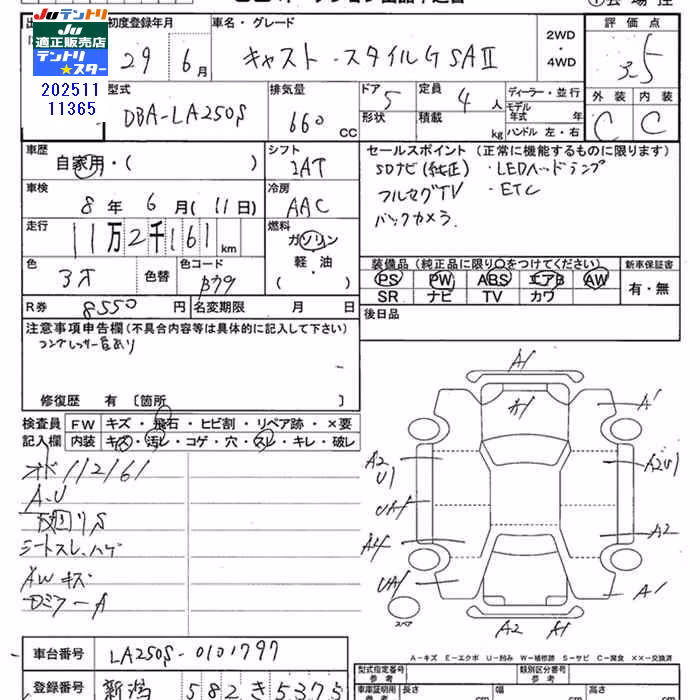 JUテントリ
適正販売店
テントリ
★スター
202511
11365
初度登録年月
29年 6月
車名・グレード
キャスト・スタイルG SAⅡ
2WD・4WD
評価点
3.5
型式
DBA-LA250S
排気量
660 CC
ドア
5
形状
定員
4人
積載
kg
ディーラー・並行
モデル年式 年
ハンドル 左・右
外装 内装
C C
車歴
自家用・( )
シフト
IAT
セールスポイント (正常に機能するものに限ります)
SDナビ(純正) ・LEDヘッドランプ
フルセグTV ・ETC
バックカメラ
車検
8年 6月 (11日)
冷房
AAC
走行
11万2千161km
燃料
ガソリン
軽・油
( )
色
色替
色コード
装備品 (純正品に限り○をつけてください)
PS PW ABS エアB AW
SR ナビ TV カワ
新車保証書
有・無
R券 8550円
名変期限 月 日
後日品
注意事項申告欄(不具合内容等は具体的に記入して下さい)
コンプレッサー音あり
修復歴 有 〔箇所 〕
検査員記入欄
FW キズ・飛石・ヒビ割・リペア跡・×要
内装 キズ・汚レ・コゲ・穴・スレ・キレ・破レ
オド112161
A.U
シートスレ.ハゲ
AWキズ
A1
A1
A1
A2
U1
A2U1
UA1
A4
A2
UA1
A1
スペア
A2 A1
A-キズ E-エクボ U-凹み W-補修跡 S-サビ C-腐食 ××-交換済
車台番号
LA250S-0101797
登録番号
新潟 582 き 5375
型式指定番号
参考
類別区分番号
参考
車庫証明用
参考
長さ
cm
幅
cm
高さ
cm